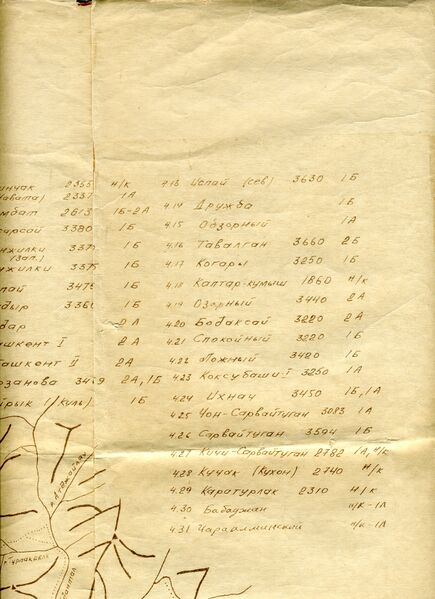 инчак 2355 н/к 4.13 Испай (сев) 3630 1Б
2337 1А 4.14 Дружба 1Б
мбат 2613 1Б-2А 4.15 Обзорный 1А
сарсай 3380 1Б 4.16 Тавалган 3660 2Б
нжилки 1Б 4.17 Когары 3250 1Б
(зап.)
нжилки 1Б 4.18 Каптар-кумыш 1860 н/к
пай 1Б 4.19 Озерный 3440 2А
дыр 1Б 4.20 Бодаксай 3220 2А
дар 2А 4.21 Спокойный 3220 1Б
ашкент I 2А 4.22 Ложный 3420 1Б
ашкент II 2А 4.23 Коксубаши-I 3250 1А
озанова 2А, 1Б 4.24 Ихнач 3450 1Б, 1А
йрык 1Б 4.25 Чон-Сарвайтуган 1А
4.26 Сарвайтуган 3594 1Б
4.27 Кичи-Сарвайтуган 2782 1А, н/к
4.28 Кучак (Кухон) 2740 н/к
4.29 Каратурлак 2310 н/к
4.30 Бабаджан н/к-1А
4.31 Чараалминский н/к-1А